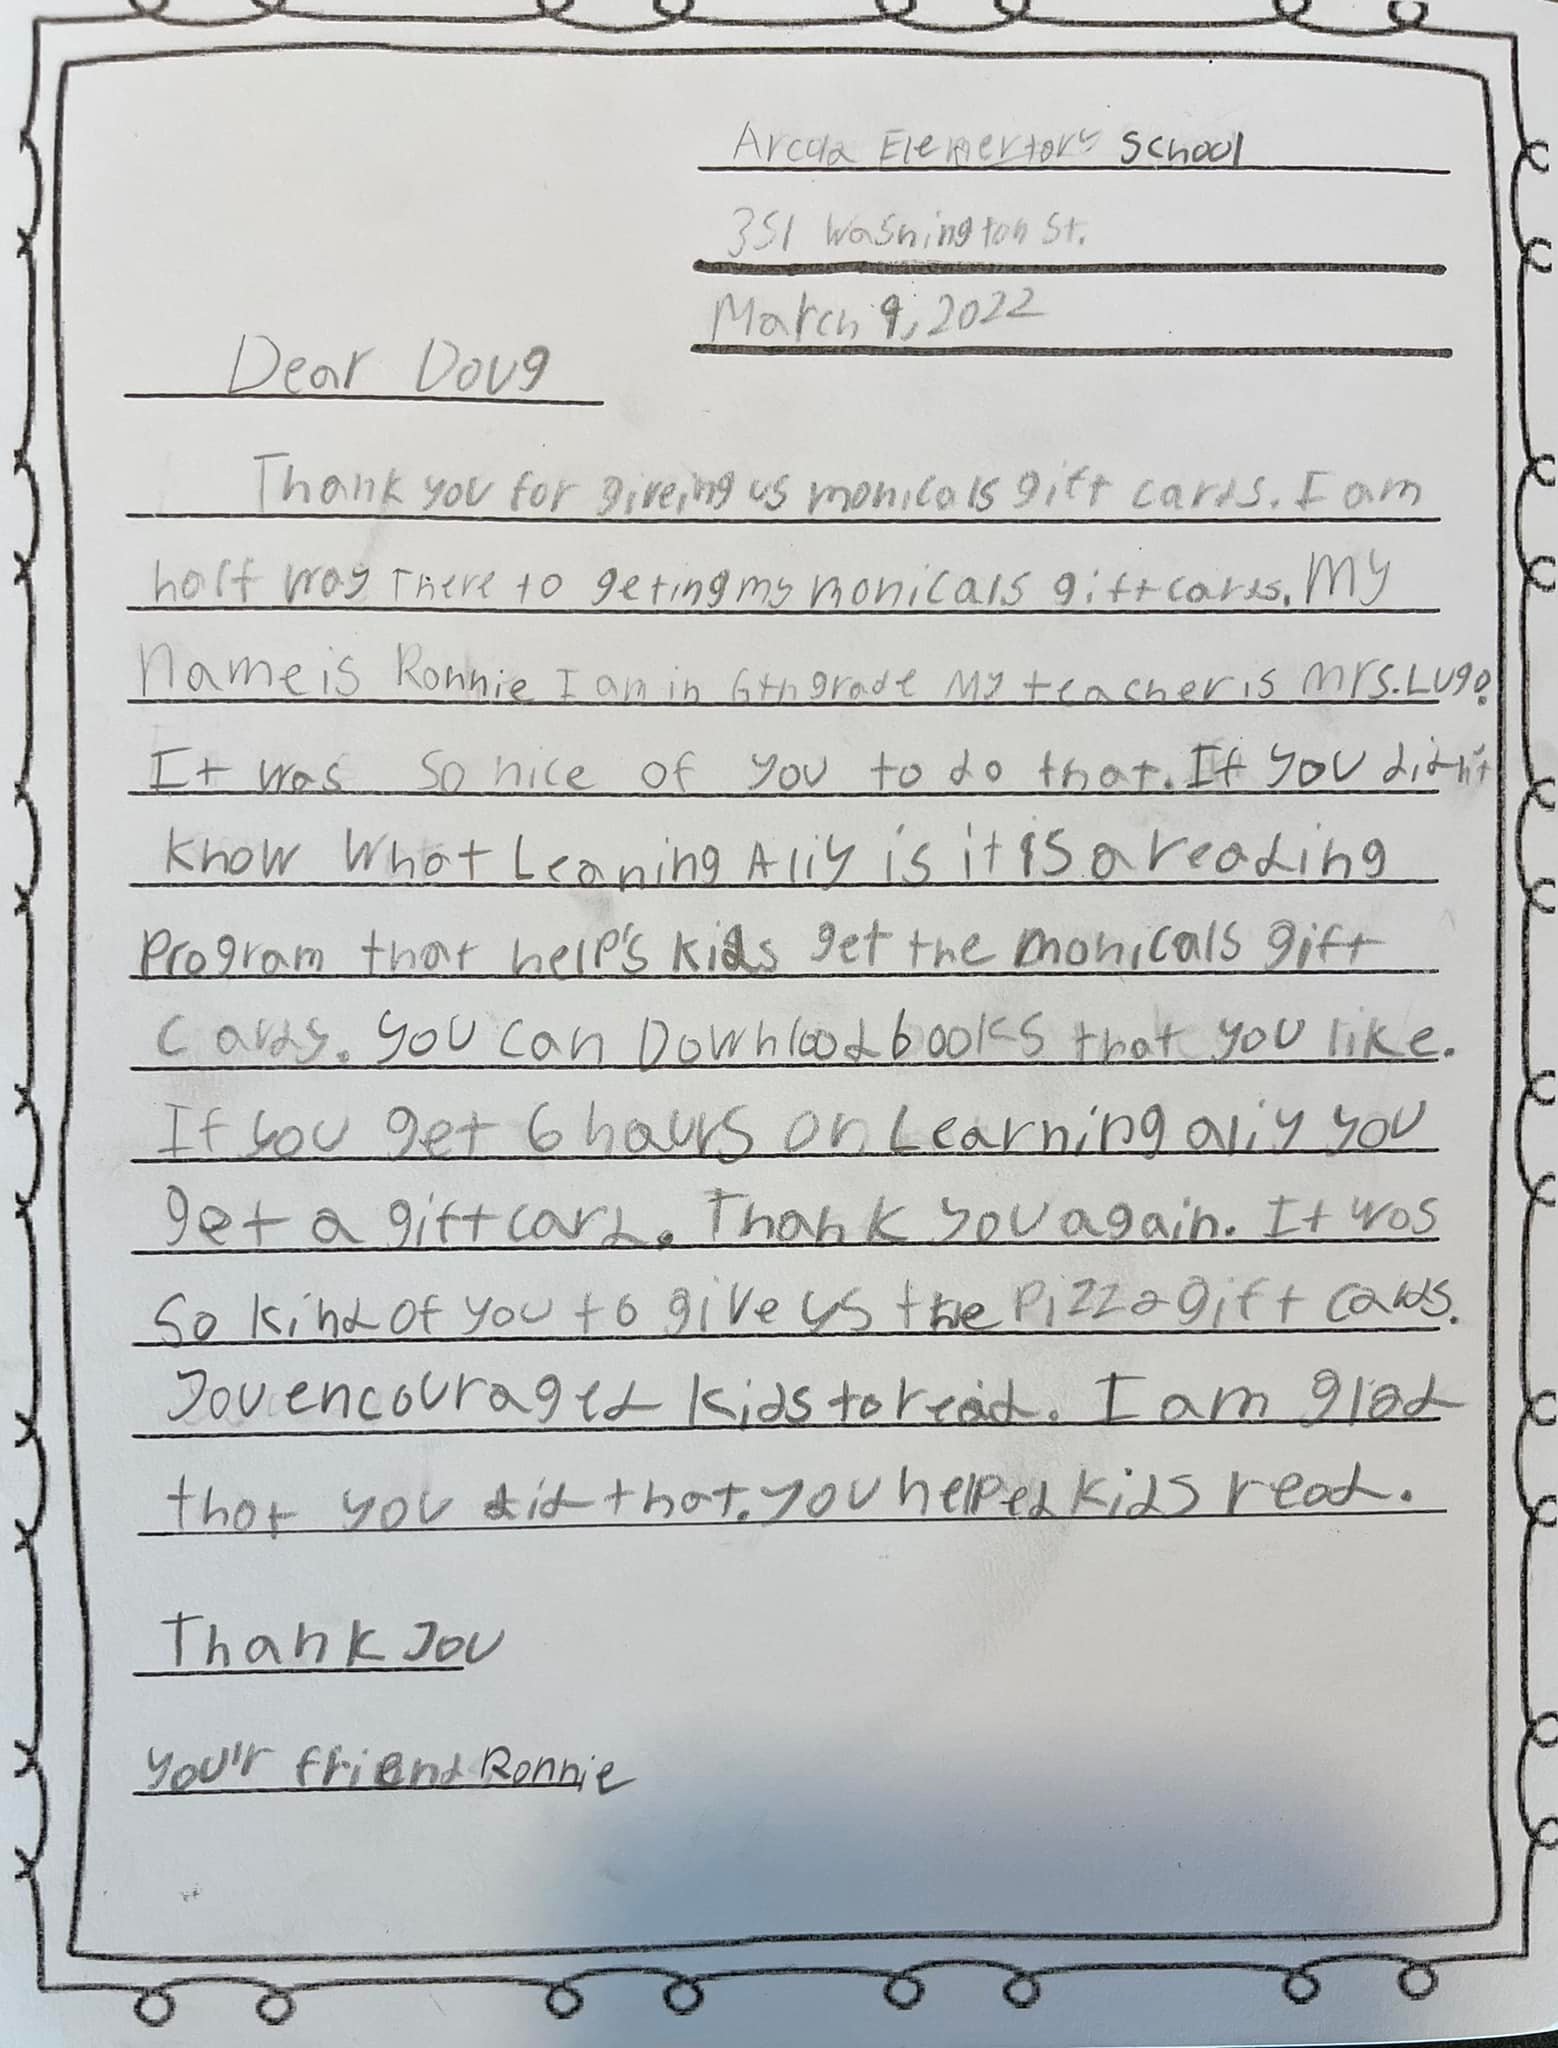 Arcola Elementory School
351 Washington St.
March 9, 2022
Dear Doug
Thank you for giveing us monicals gift cards. I am
half way There to geting my monicals gift cards. My
Name is Ronnie I am in 6th grade My teacher is Mrs. Lugo.
It was so nice of you to do that. If you didn't
know What Leaning Ally is it is a reading
Program that help's kids get the monicals gift
Cards. you can Download books that you like.
If you get 6 hours on Learning ally you
get a gift card. Thank you again. It was
So kind of you to give us the Pizza gift cards.
You encouraged kids to read. I am glad
that you did that. you helped kids read.
Thank You
you'r friend Ronnie